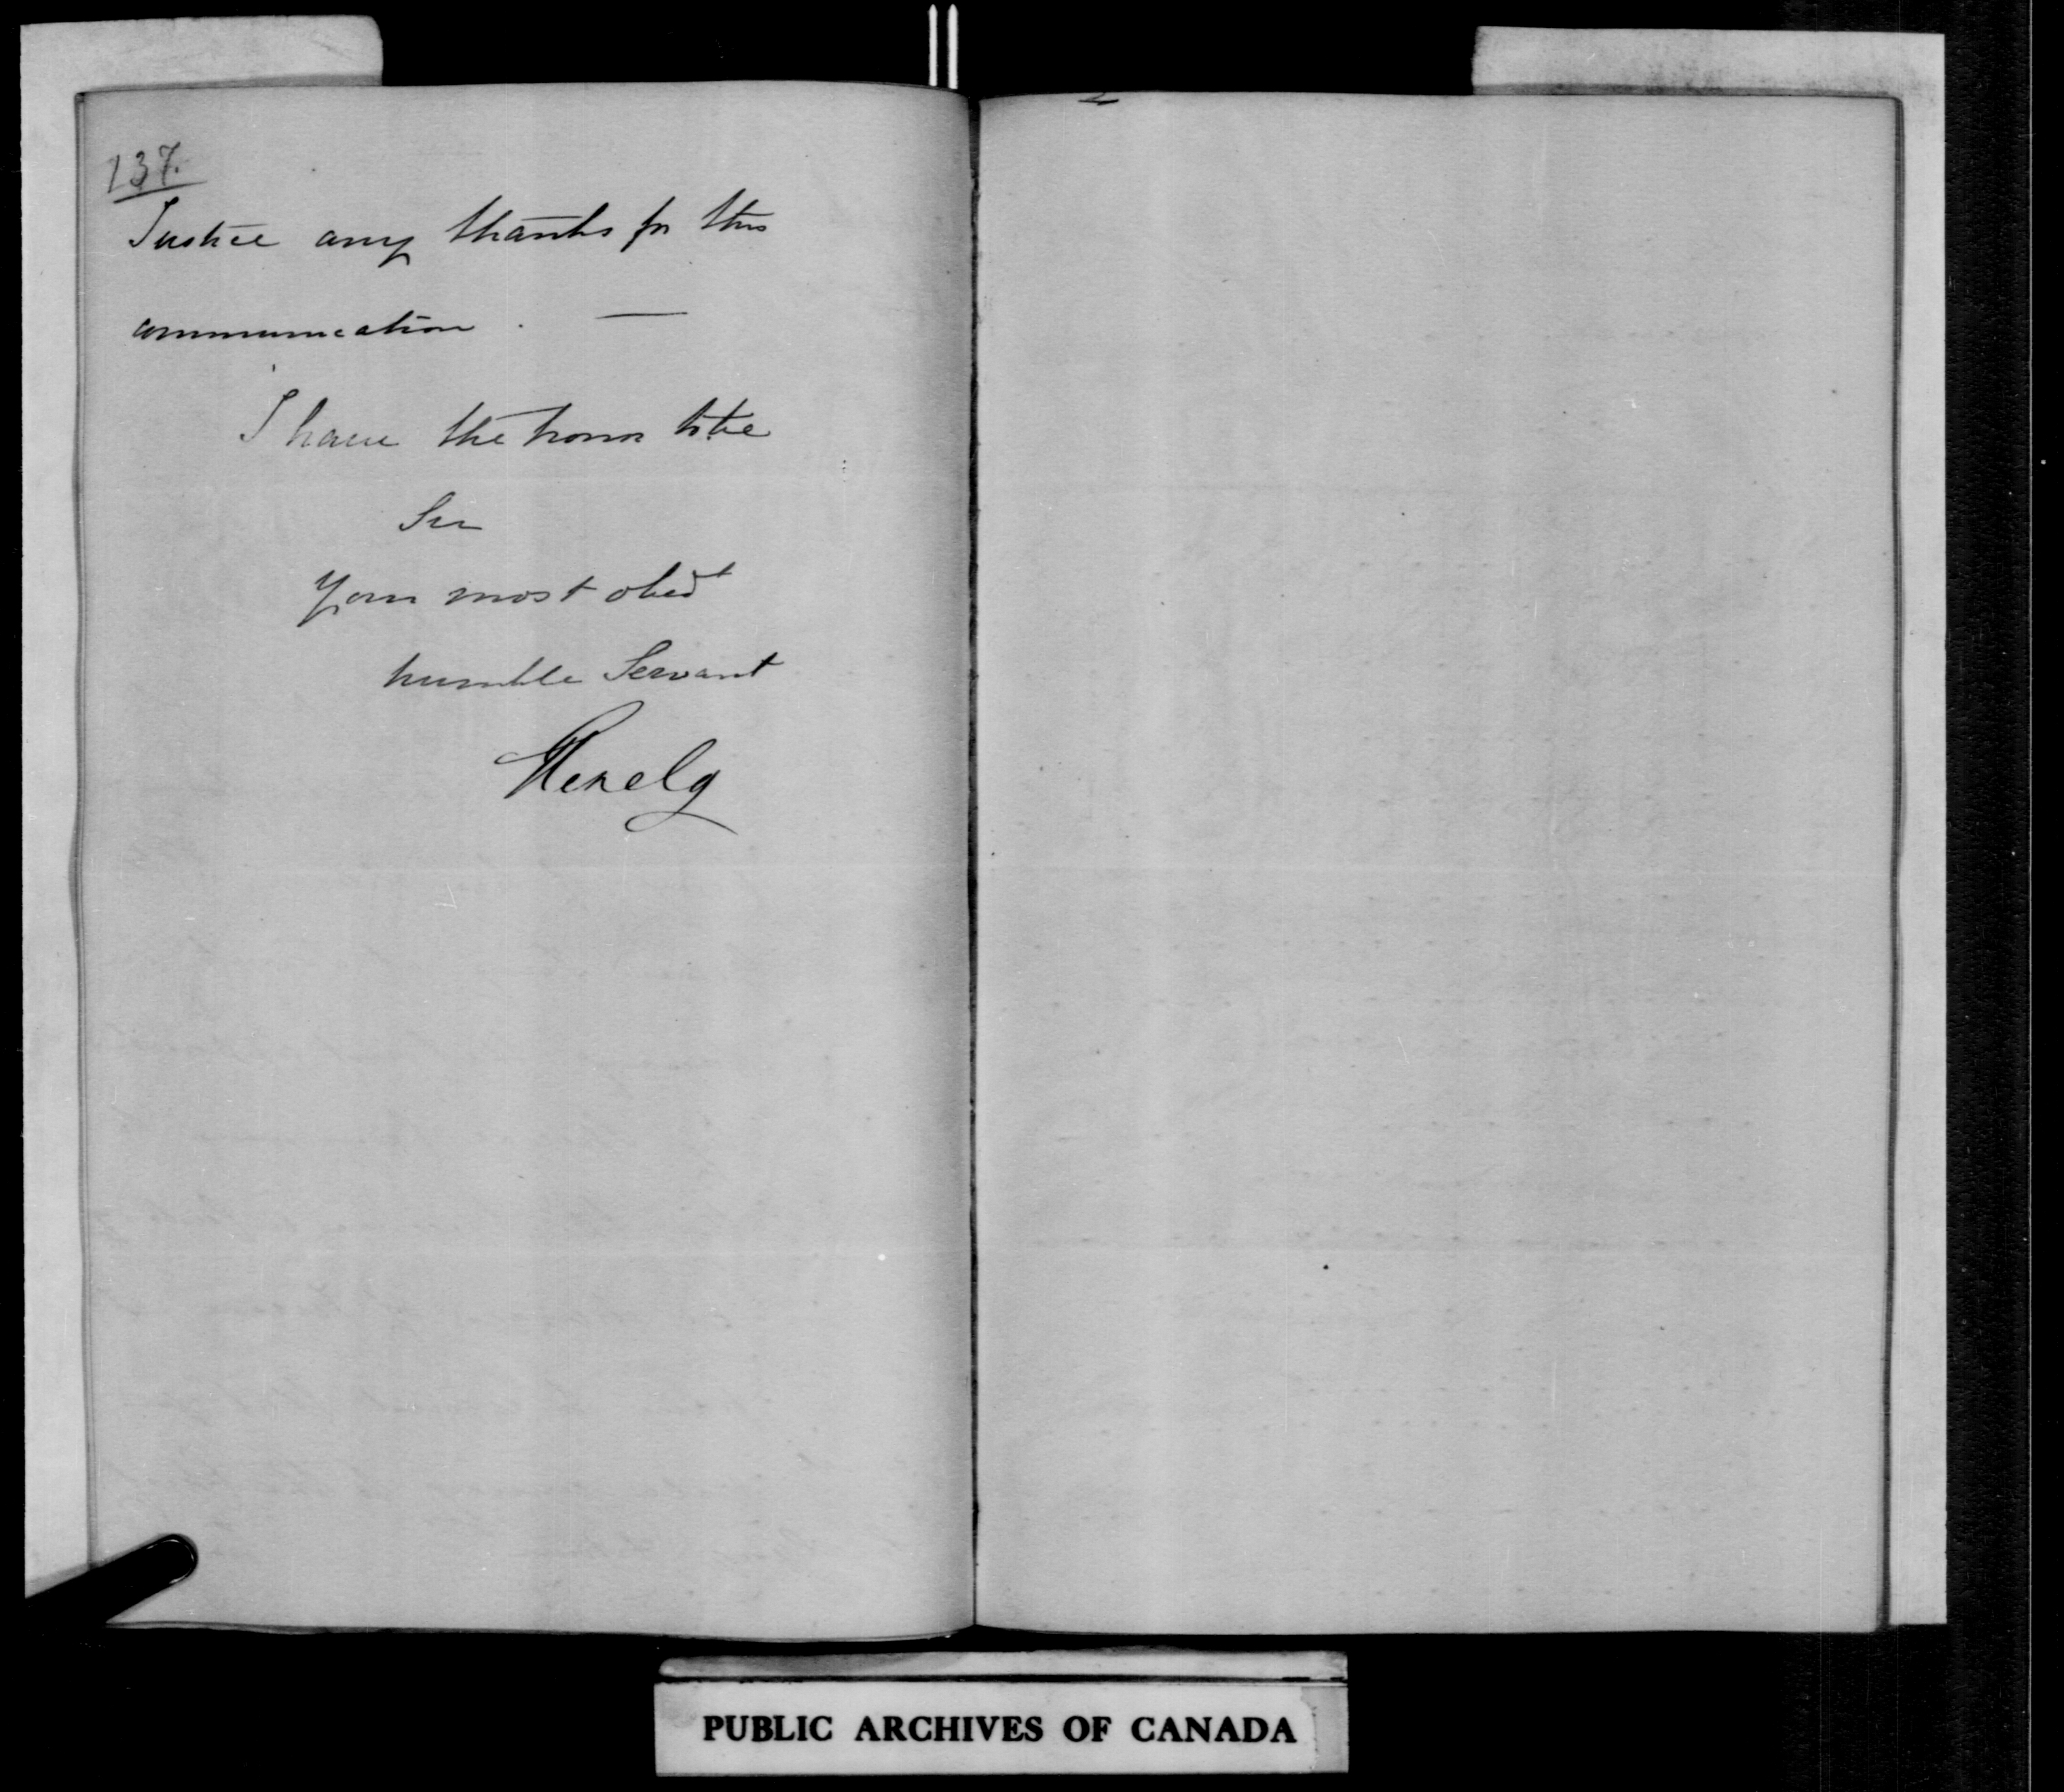 137.
Justice any thanks for this
communication. —
I have the honor to be
Sir
Your most obedt
humble Servant
Glenelg
PUBLIC ARCHIVES OF CANADA